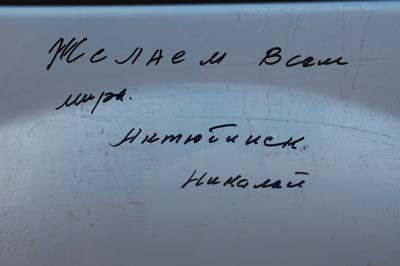 Желаем всем
мира.
Николай